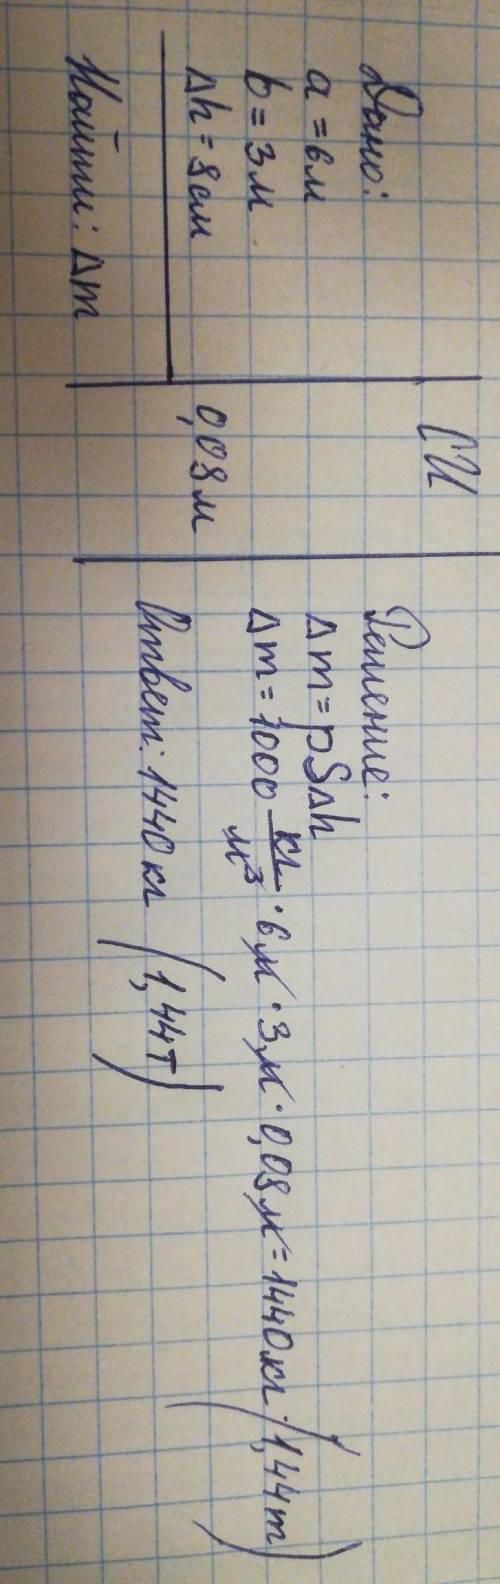 Дано:
a = 6 м
b = 3 м
Δh = 8 см
Найти: Δm
СИ
0,08 м
Решение:
Δm = ρSΔh
Δm = 1000 кг/м³ · 6 м · 3 м · 0,08 м = 1440 кг (1,44 т)
Ответ: 1440 кг (1,44 т)